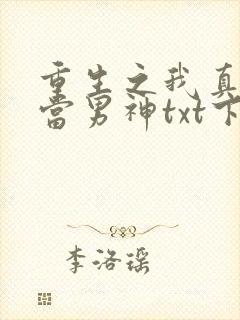 重生之我真
当男神txt下
李洛瑶